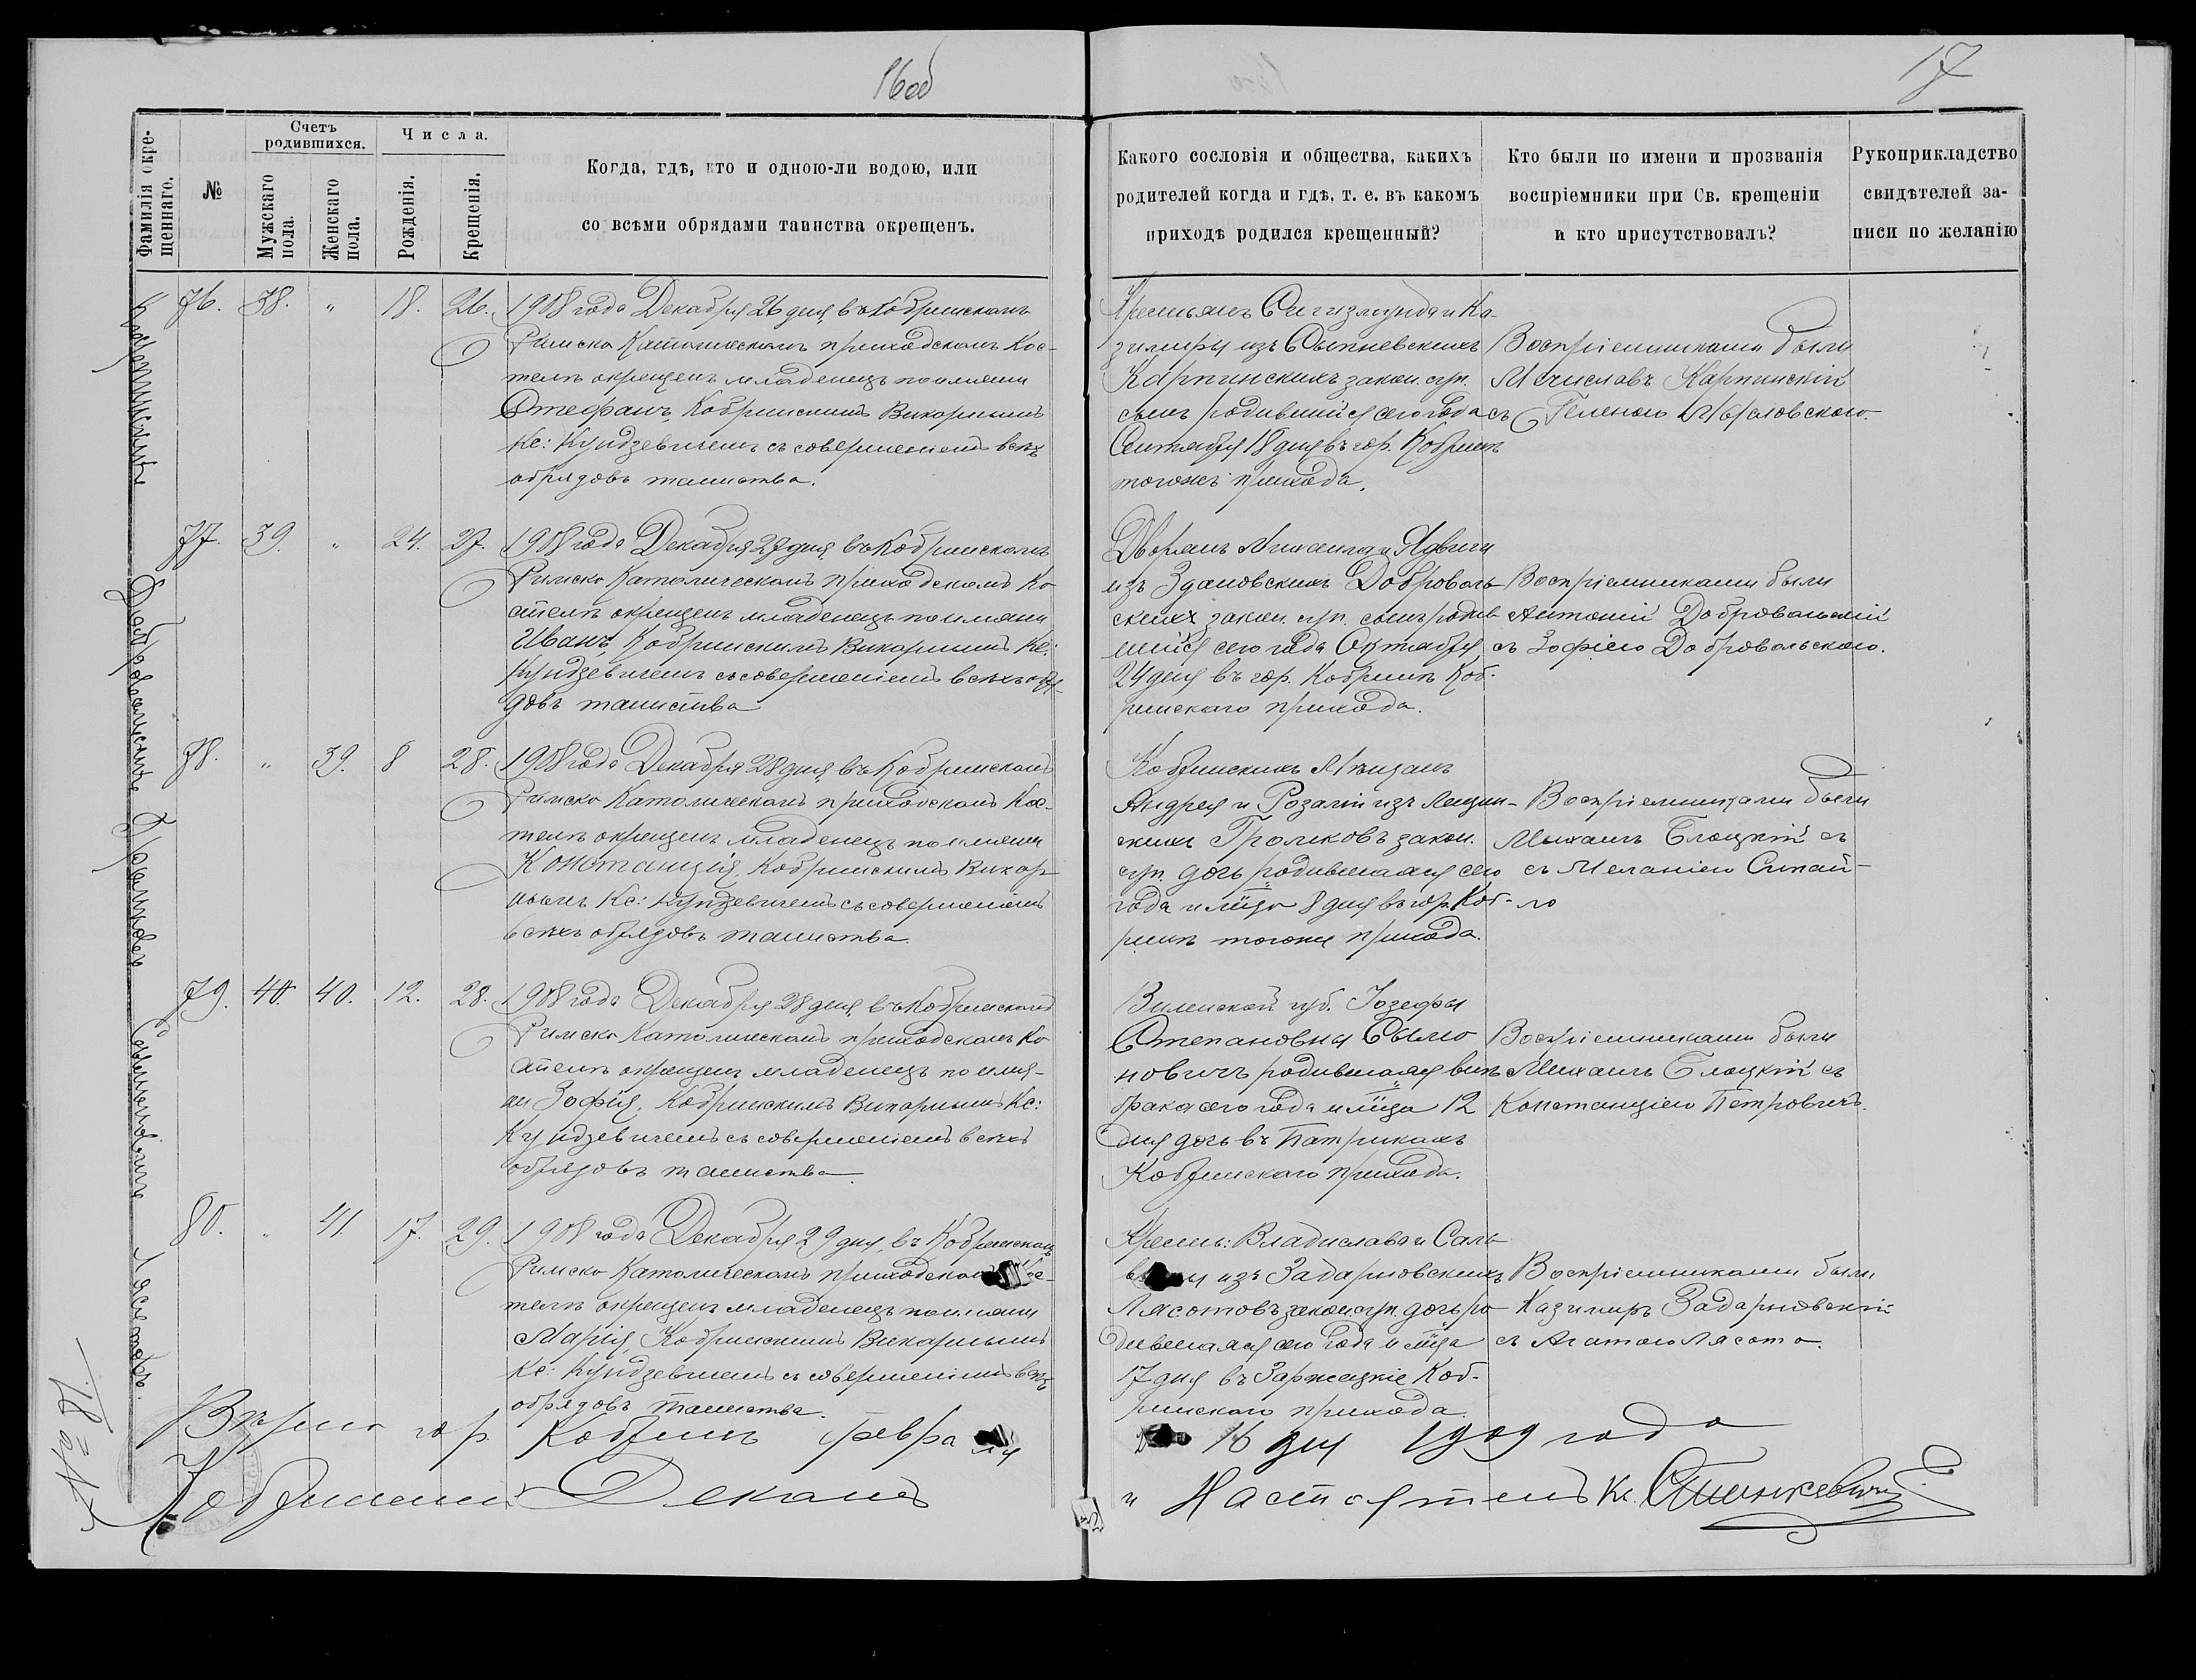 16об
17
Фамилія окре-
щеннаго.
№
Счетъ
родившихся.
Мужскаго
пола.
Женскаго
пола.
Числа.
Рожденія.
Крещенія.
Когда, гдѣ, кто и одною-ли водою, или
со всѣми обрядами таинства окрещенъ.
Какого сословія и общества, какихъ
родителей когда и гдѣ, т. е. въ какомъ
приходѣ родился крещенный?
Кто были по имени и прозванія
воспріемники при Св. крещеніи
и кто присутствовалъ?
Рукоприкладство
свидѣтелей за-
писи по желанію
Карпинскій
76. 38. " 18. 26.
1908 года Декабря 26 дня, въ Кобринскомъ
Римско Католическомъ приходскомъ Кос-
телѣ окрещенъ младенецъ по имени
Стефанъ, Кобринскимъ Викарнымъ
Кс: Кундзевичемъ съ совершеніемъ всѣхъ
обрядовъ таинства.
Крестьянъ Сигизмунда и Ка-
зимиры изъ Сыпневскихъ
Карпинскихъ закон. супр.
сынъ родившійся сего года
Сентября 18 дня въ гор. Кобринѣ
тогоже прихода.
Воспріемниками были
Мечиславъ Карпинскій
съ Геленою
Добровольскій
77. 39. " 24. 27.
1908 года Декабря 27 дня, въ Кобринскомъ
Римско Католическомъ приходскомъ Ко
стелѣ окрещенъ младенецъ по имени
Иванъ, Кобринскимъ Викарнымъ Кс:
Кундзевичемъ съ совершеніемъ всѣхъ обря-
довъ таинства
Дворянъ Михаила и Ядвиги
изъ Здановскихъ Доброволь
скихъ закон. супр. сынъ родив
шійся сего года Октября
24 дня въ гор. Кобринѣ Коб-
ринскаго прихода.
Воспріемниками были
Антоній Добровольскій
съ Зофіею Добровольскою.
Громковъ
78. " 39. 8 28.
1908 года Декабря 28 дня, въ Кобринскомъ
Римско Католическомъ приходскомъ Кос-
телѣ окрещенъ младенецъ по имени
Констанція, Кобринскимъ Викар
нымъ Кс: Кундзевичемъ съ совершеніемъ
всѣхъ обрядовъ таинства.
Кобринскихъ Мѣщанъ
Андрея и Розаліи изъ
скихъ Громковъ закон.
супр. дочь родившаяся сего
года и мца 8 дня въ гор. Коб-
ринѣ тогоже прихода.
Воспріемниками были
Михаилъ Блоцкій съ
съ Меланіею Сипай-
ло
79. 40. 40. 12. 28.
1908 года Декабря 28 дня, въ Кобринскомъ
Римско Католическомъ приходскомъ Ко
стелѣ окрещенъ младенецъ по име-
ни Зофія, Кобринскимъ Викарнымъ Кс:
Кундзевичемъ съ совершеніемъ всѣхъ
обрядовъ таинства.
Виленской губ. Іозефы
Степановны
новичъ родившаяся внѣ
брака сего года и мца 12
дня дочь въ Патрикахъ
Кобринскаго прихода.
Воспріемниками были
Михаилъ Блоцкій съ
Констанціею Петровичъ.
Лясотовъ
80. " 41. 17. 29.
1908 года Декабря 29 дня, въ Кобринскомъ
Римско Католическомъ приходскомъ Кос-
телѣ окрещенъ младенецъ по имени
Марія, Кобринскимъ Викарнымъ
Кс: Кундзевичемъ съ совершеніемъ всѣхъ
обрядовъ таинства.
Крест: Владислава и
изъ Задарновскихъ
Лясотовъ закон. супр. дочь ро
дившаяся сего года и мца
17 дня въ Коб-
ринскаго прихода.
Воспріемниками были
Казимиръ Задарновскій
съ Агатою Лясота.
№ 81.
Вѣрно гор. Кобринъ февра ля
16 дня 1909 года
Кобринскій Деканъ
и Настоятель Кс.